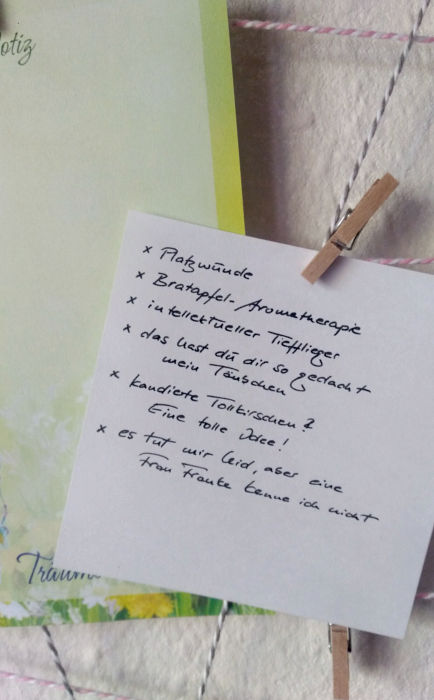 otiz
x Platzwunde
x Bratapfel-Aromatherapie
x intellektueller Tiefflieger
x das hast du dir so gedacht
mein Täubchen
x kandierte Tollkirschen?
Eine tolle Idee!
x es tut mir leid, aber eine
Frau Franke kenne ich nicht
Träum